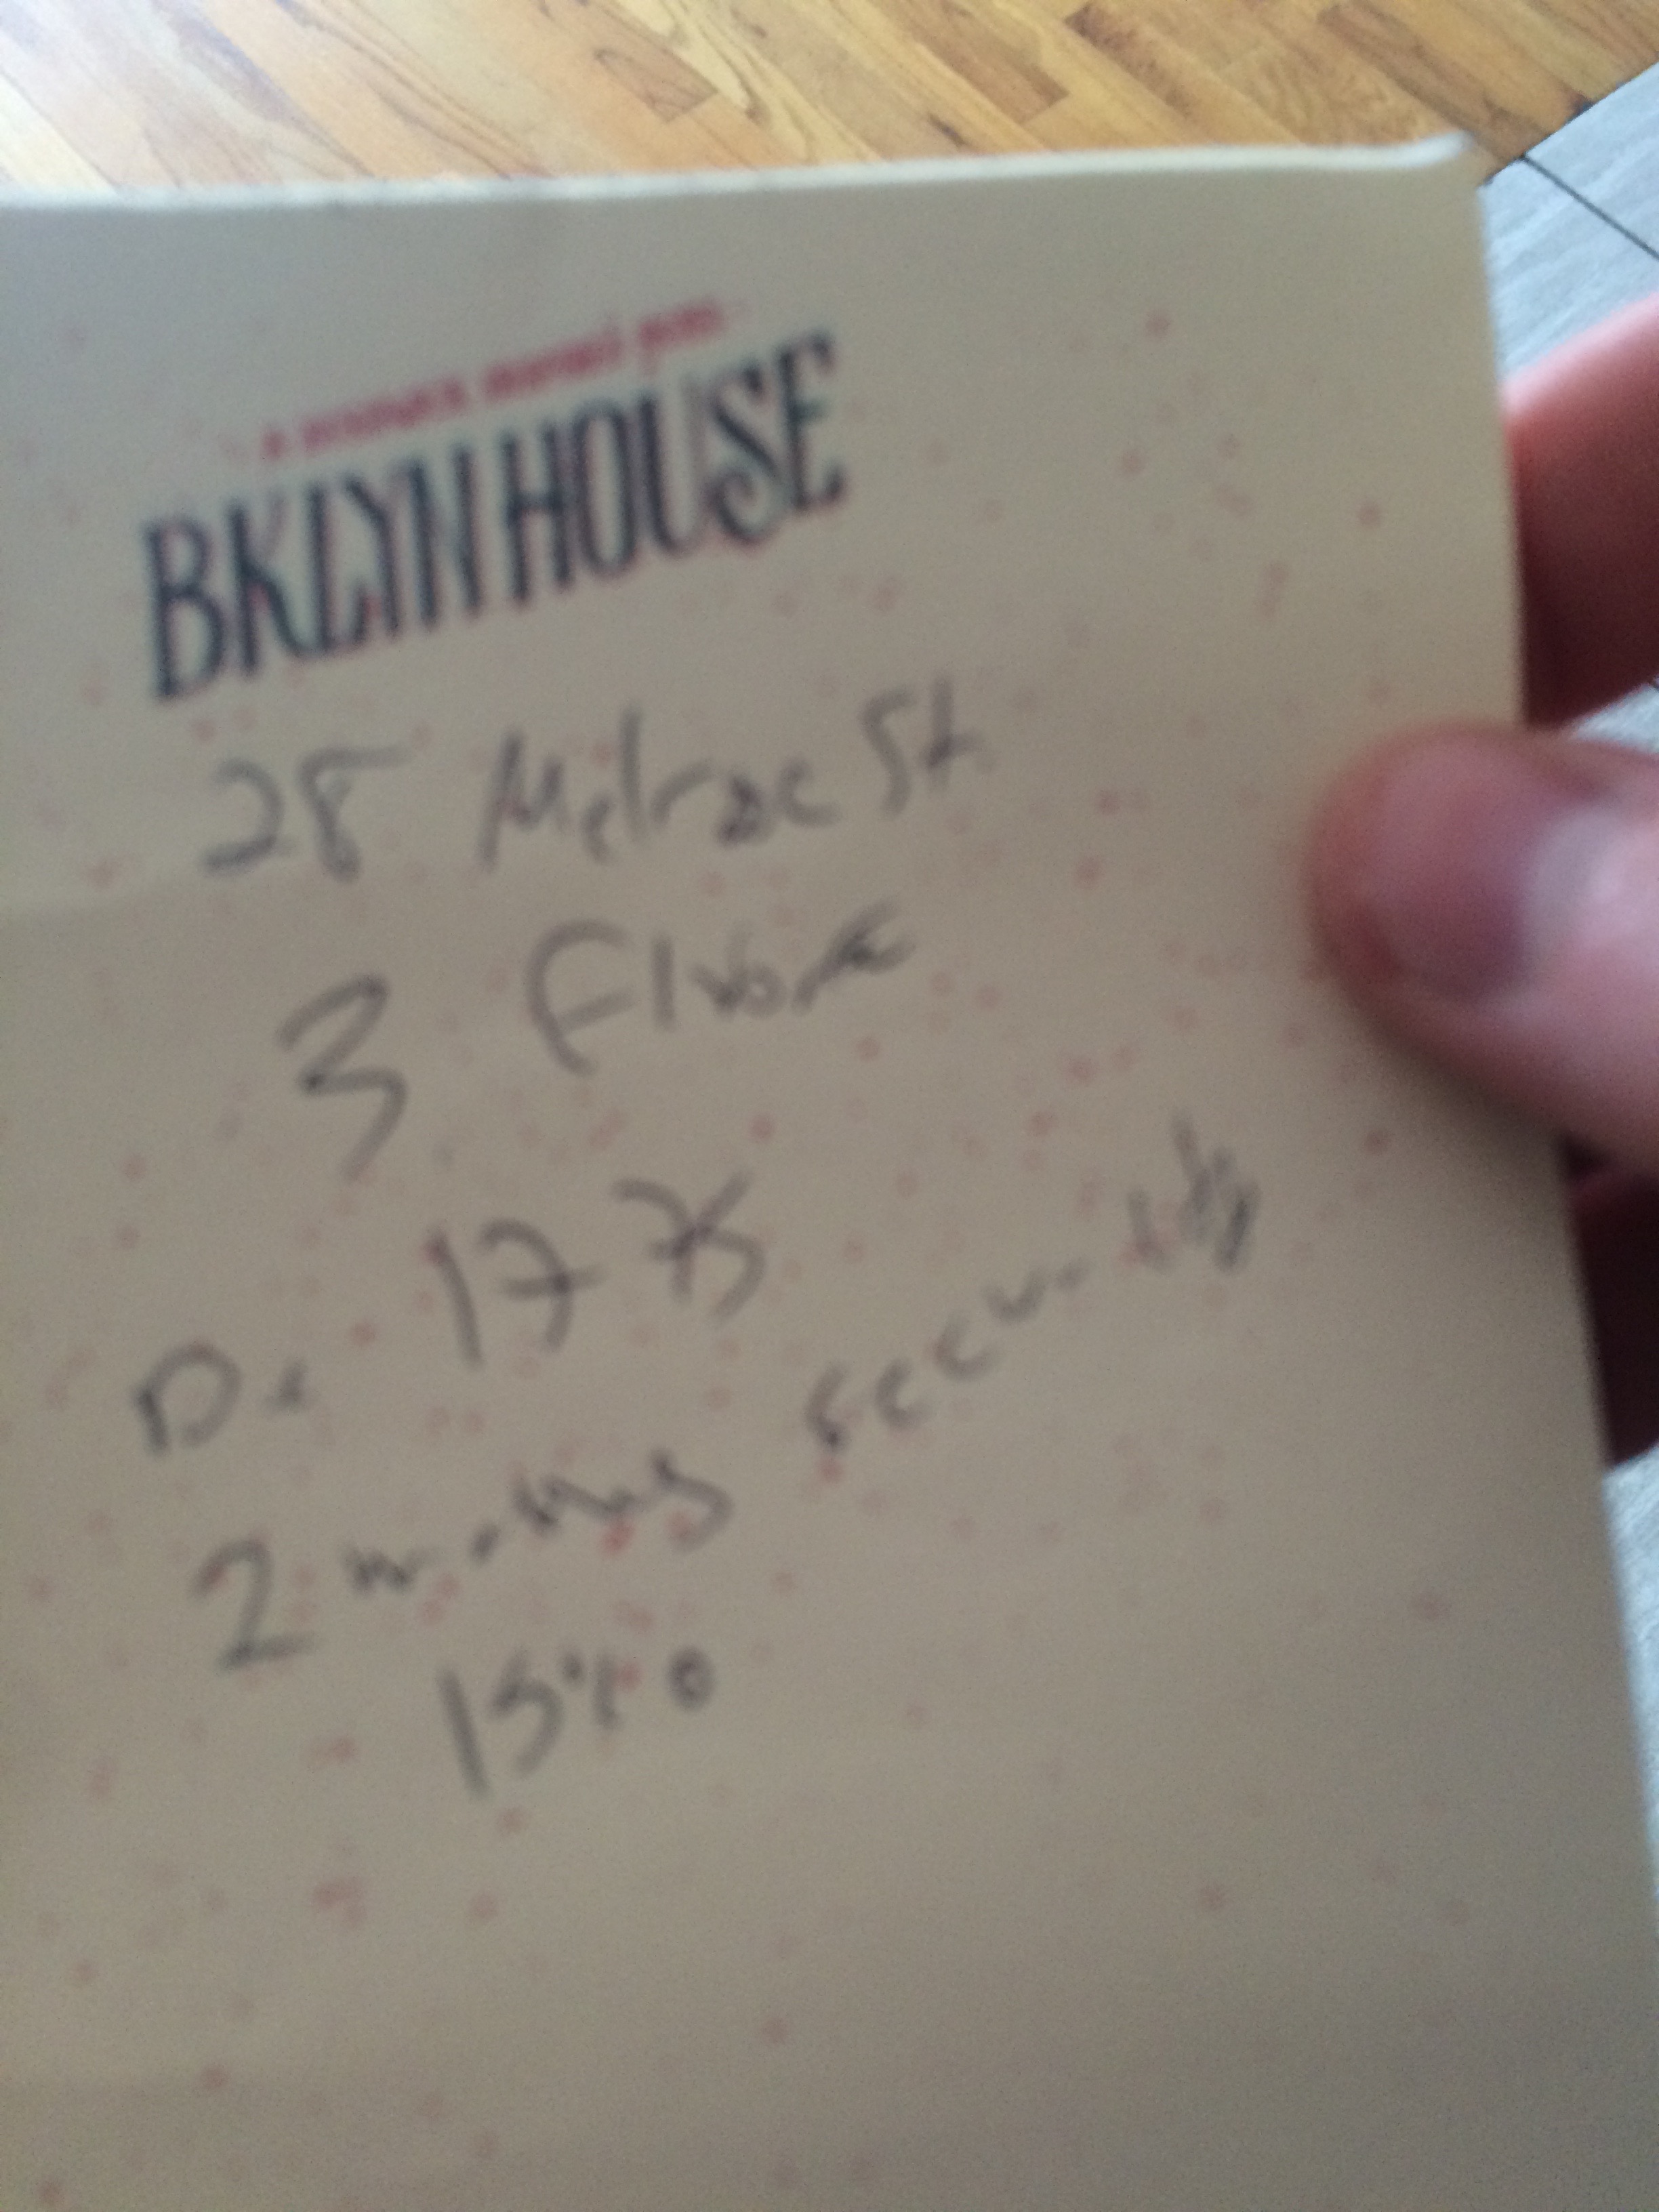 BKLYN HOUSE
28 Melrose St
3 Floor
1775
2 months security
15%